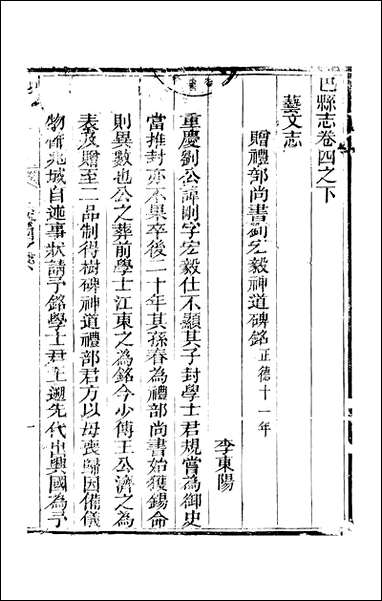 巴縣志卷四之下
藝文志
贈禮部尚書劉宏毅神道碑銘 正德十一年
李東陽
重慶劉公諱剛字宏毅仕不顯其子封學士君規嘗為御史
當推封亦不果卒後二十年其孫春為禮部尚書始獲錫命
則異數也公之葬前學士江東之為銘今少傅王公濟之為
表及贈至二品制得樹碑神道禮部君方以母喪歸因備儀
物 兆域自述事狀請予銘學士君上遡先代出興國為予